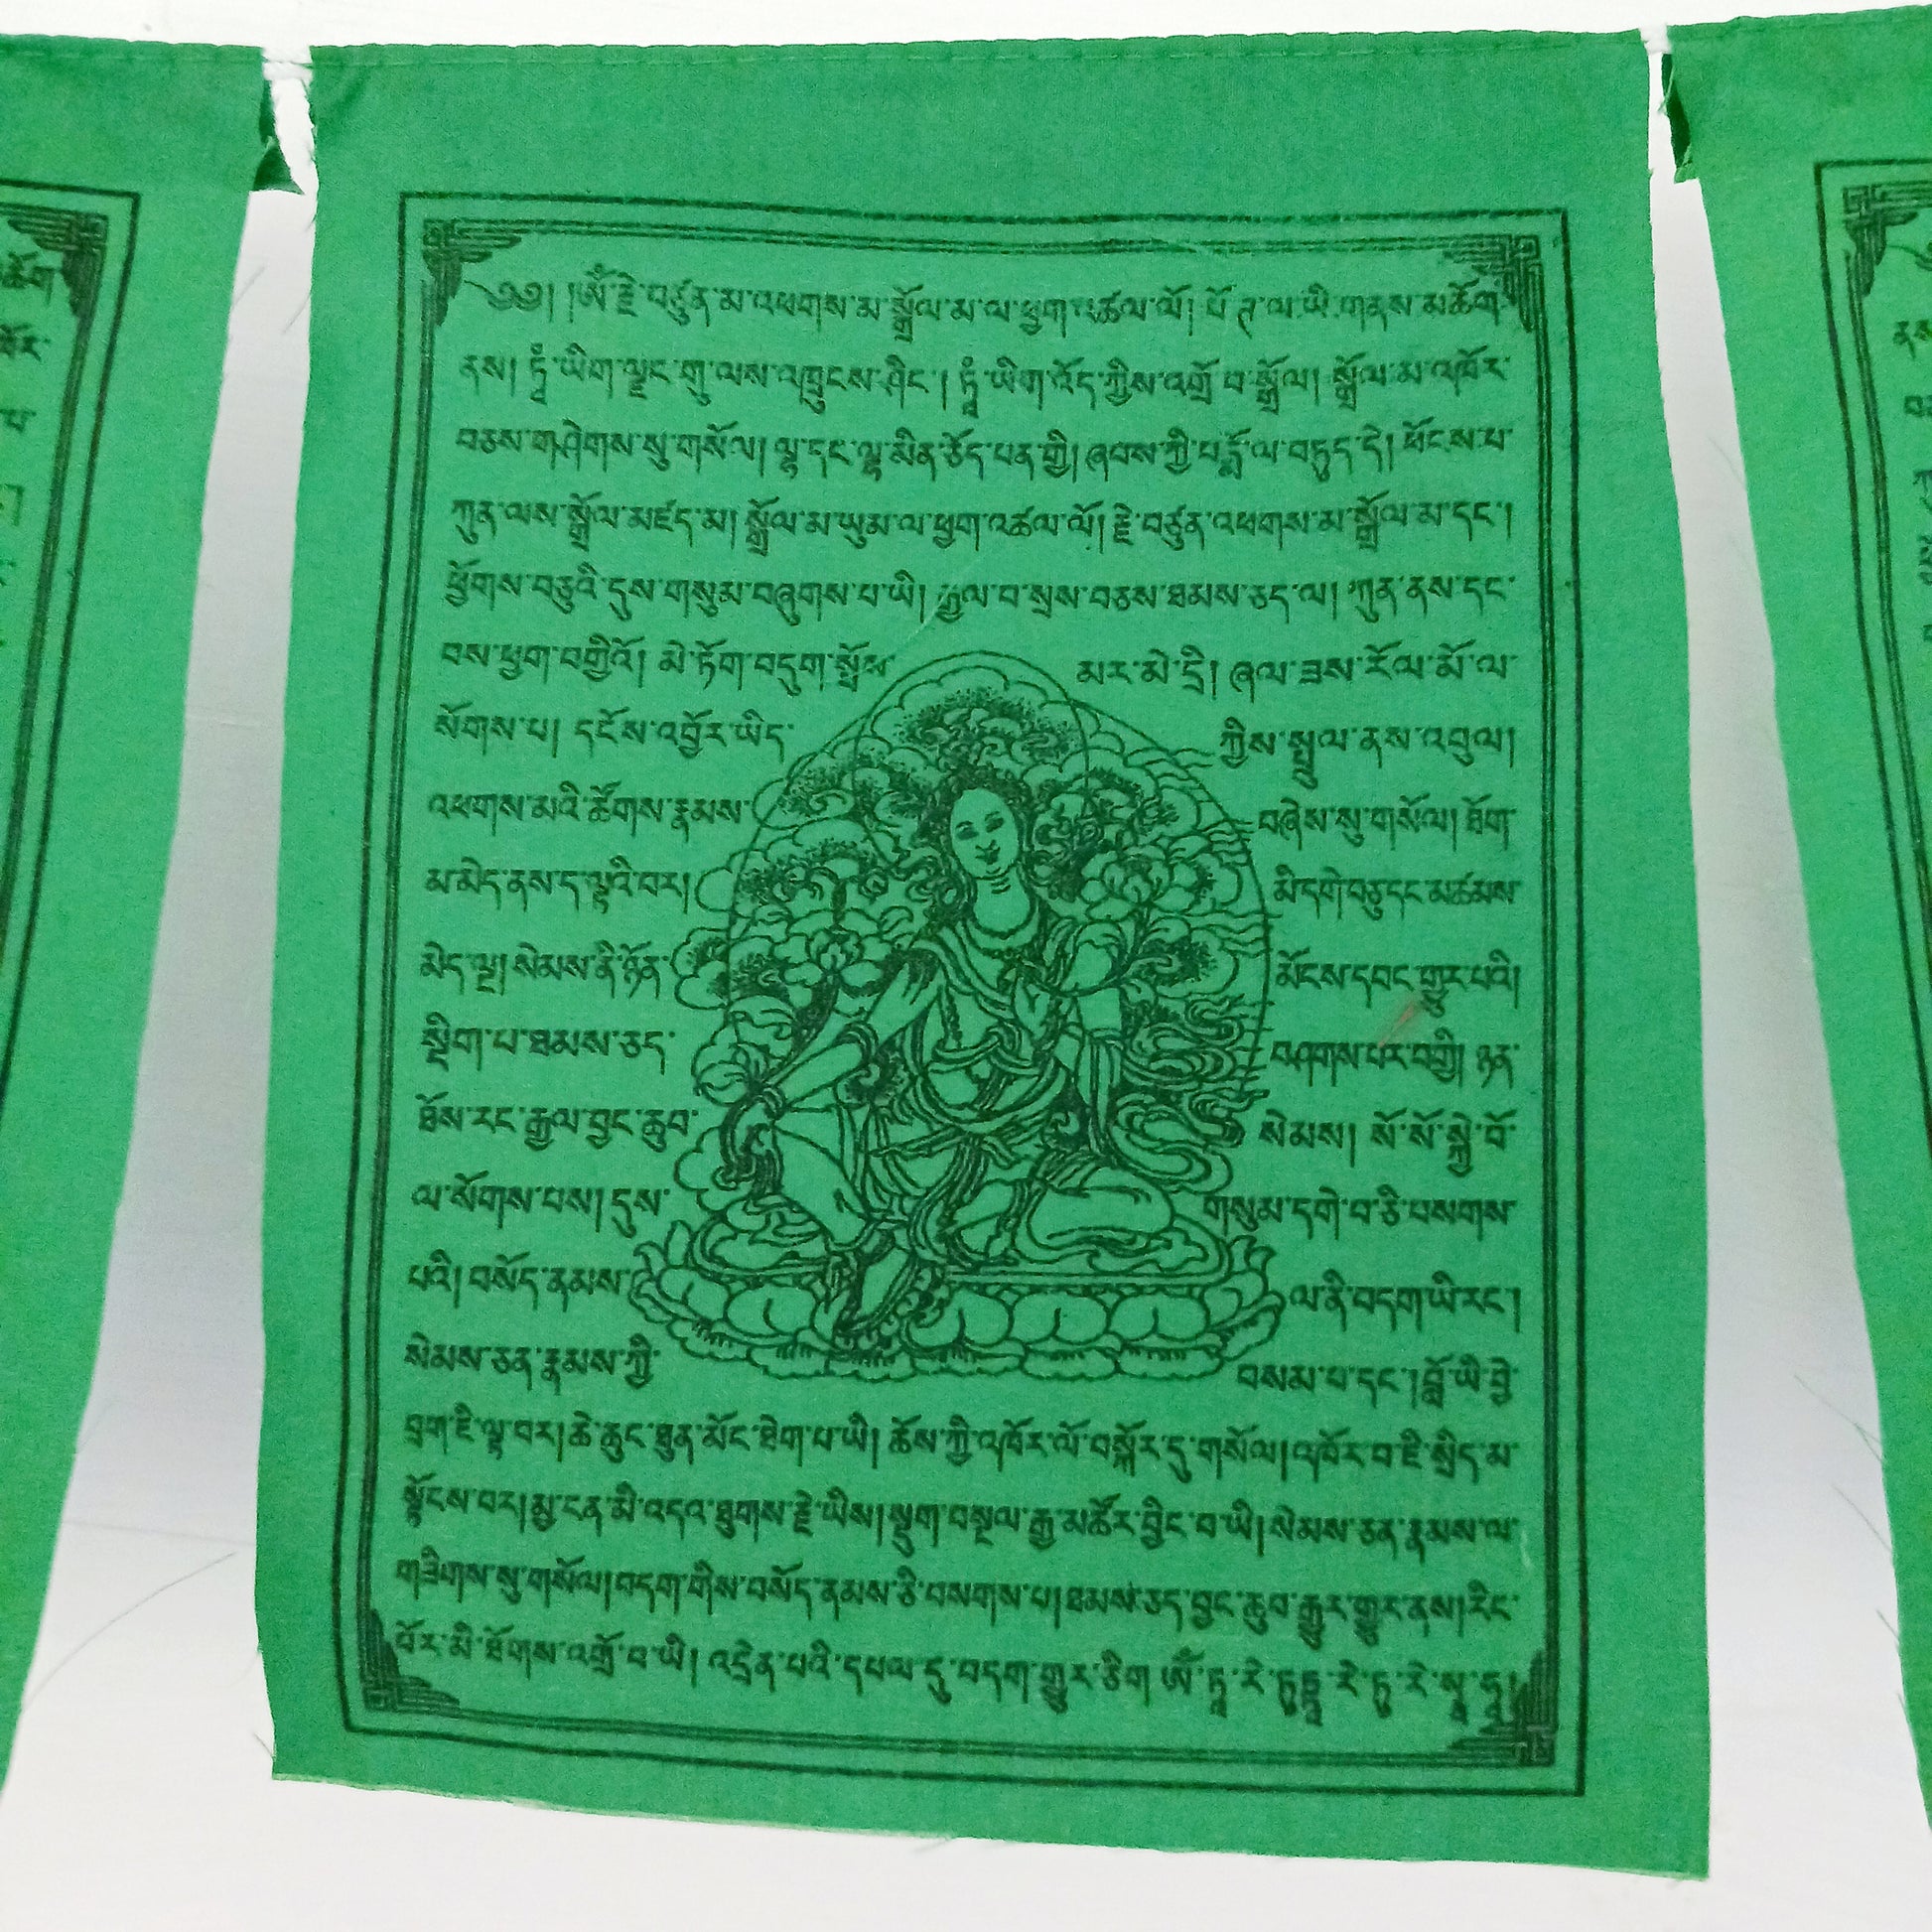 ༄༅། །ༀ་རྗེ་བཙུན་མ་འཕགས་མ་སྒྲོལ་མ་ལ་ཕྱག་འཚལ་ལོ། པོ་ཊ་ལ་ཡི་གནས་མཆོག་
ནས། ཏཱཾ་ཡིག་ལྗང་གུ་ལས་འཁྲུངས་ཤིང་། ཏཱཾ་ཡིག་འོད་ཀྱིས་འགྲོ་བ་སྒྲོལ། སྒྲོལ་མ་འཁོར་
བཅས་གཤེགས་སུ་གསོལ། ལྷ་དང་ལྷ་མིན་ཅོད་པན་གྱི། ཞབས་ཀྱི་པདྨོ་ལ་བཏུད་དེ། ཕོངས་པ་
ཀུན་ལས་སྒྲོལ་མཛད་མ། སྒྲོལ་མ་ཡུམ་ལ་ཕྱག་འཚལ་ལོ། རྗེ་བཙུན་འཕགས་མ་སྒྲོལ་མ་དང་།
ཕྱོགས་བཅུའི་དུས་གསུམ་བཞུགས་པ་ཡི། རྒྱལ་བ་སྲས་བཅས་ཐམས་ཅད་ལ། ཀུན་ནས་དང་
བས་ཕྱག་བགྱིའོ། མེ་ཏོག་བདུག་སྤོས་ མར་མེ་དྲི། ཞལ་ཟས་རོལ་མོ་ལ་
སོགས་པ། དངོས་འབྱོར་ཡིད་ ཀྱིས་སྤྲུལ་ནས་འབུལ།
འཕགས་མའི་ཚོགས་རྣམས་ བཞེས་སུ་གསོལ། ཐོག་
མ་མེད་ནས་ད་ལྟའི་བར། མི་དགེ་བཅུ་དང་མཚམས་
མེད་ལྔ། སེམས་ནི་ཉོན་ མོངས་དབང་གྱུར་པའི།
སྡིག་པ་ཐམས་ཅད་ བཤགས་པར་བགྱི། ཉན་
ཐོས་རང་རྒྱལ་བྱང་ཆུབ་ སེམས། སོ་སོ་སྐྱེ་བོ་
ལ་སོགས་པས། དུས་ གསུམ་དགེ་བ་ཅི་བསགས་
པའི། བསོད་ནམས་ ལ་ནི་བདག་ཡི་རང་།
སེམས་ཅན་རྣམས་ཀྱི་ བསམ་པ་དང་། བློ་ཡི་བྱེ་
བྲག་ཇི་ལྟ་བར། ཆེ་ཆུང་ཐུན་མོང་ཐེག་པ་ཡི། ཆོས་ཀྱི་འཁོར་ལོ་བསྐོར་དུ་གསོལ། འཁོར་བ་ཇི་སྲིད་མ་
སྟོངས་བར། མྱ་ངན་མི་འདའ་ཐུགས་རྗེ་ཡིས། སྡུག་བསྔལ་རྒྱ་མཚོར་བྱིང་བ་ཡི། སེམས་ཅན་རྣམས་ལ་
གཟིགས་སུ་གསོལ། བདག་གིས་བསོད་ནམས་ཅི་བསགས་པ། ཐམས་ཅད་བྱང་ཆུབ་རྒྱུར་གྱུར་ནས། རིང་
པོར་མི་ཐོགས་འགྲོ་བ་ཡི། འདྲེན་པའི་དཔལ་དུ་བདག་གྱུར་ཅིག ༀ་ཏཱ་རེ་ཏུཏྟཱ་རེ་ཏུ་རེ་སྭཱ་ཧཱ།